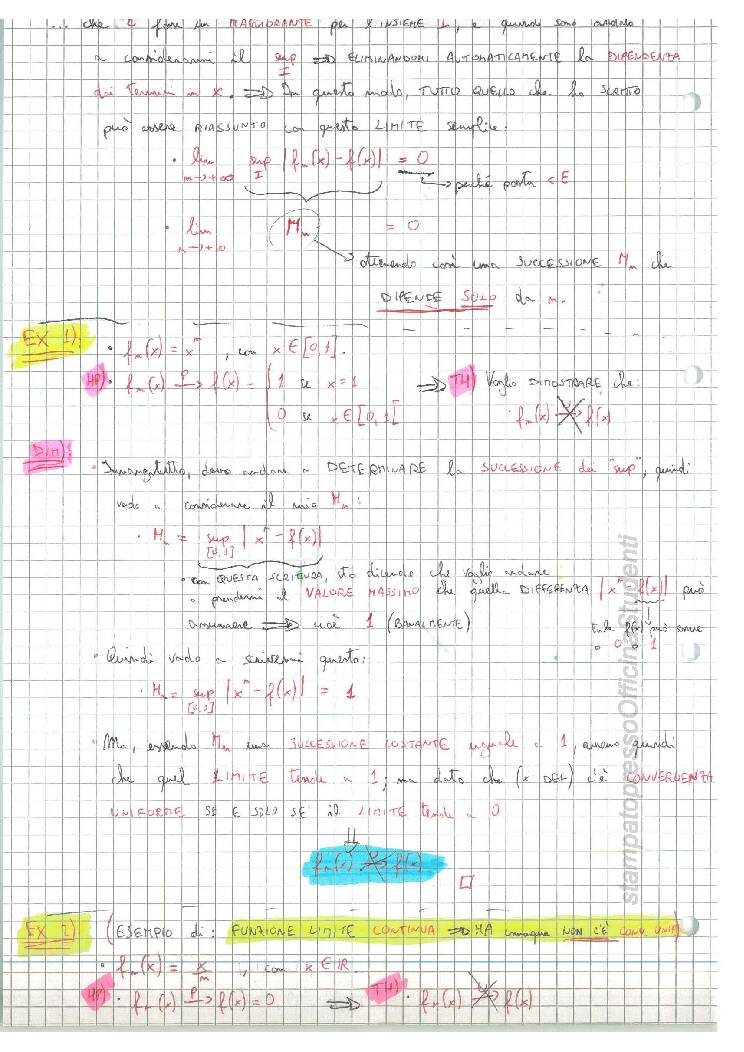 ... che è fosse un MAGGIORANTE per l'INSIEME I, e quindi sono andato
a considerarmi il sup I => ELIMINANDOMI AUTOMATICAMENTE la DIPENDENZA
dai termini in x. => In questo modo, TUTTO QUELLO che ho SCRITTO
può essere RIASSUNTO con questo LIMITE semplice:
• lim n->+∞ sup I |fn(x) - f(x)| = 0
-> perché posta < ε
• lim n->+∞ Mn = 0
ottenendo così una SUCCESSIONE Mn che
DIPENDE SOLO da n.
EX 1) • fn(x) = x^n, con x ∈ [0,1].
HP) • fn(x) P-> f(x) = { 1 se x=1 => TH) Voglio DIMOSTRARE che:
0 se x ∈ [0,1[ • fn(x) -> f(x)
DIM)
• Innanzitutto, devo andare a DETERMINARE la SUCCESSIONE dei "sup", quindi
vado a considerare il mio Mn:
• Mn = sup [0,1] |x^n - f(x)|
• con QUESTA SCRITTURA, sto dicendo che voglio andare
a prendermi il VALORE MASSIMO che quella DIFFERENZA |x^n - f(x)| può
assumere => cioè 1 (BANALMENTE)
tale f(x) può essere
o 0 o 1
• Quindi vado a scrivermi questo:
• Mn = sup [0,1] |x^n - f(x)| = 1
• Ma, essendo Mn una SUCCESSIONE COSTANTE uguale a 1, avremo quindi
che quel LIMITE tende a 1; ma dato che (x DEF) c'è CONVERGENZA
UNIFORME SE E SOLO SE il LIMITE tende a 0
fn(x) -> f(x)
stampatopessoOfficinaStudenti
EX 2) (ESEMPIO di: FUNZIONE LIMITE CONTINUA => MA comunque NON C'È CONV. UNIF)
• fn(x) = x/n, con x ∈ IR.
HP) • fn(x) P-> f(x) = 0 => TH) • fn(x) -> f(x)